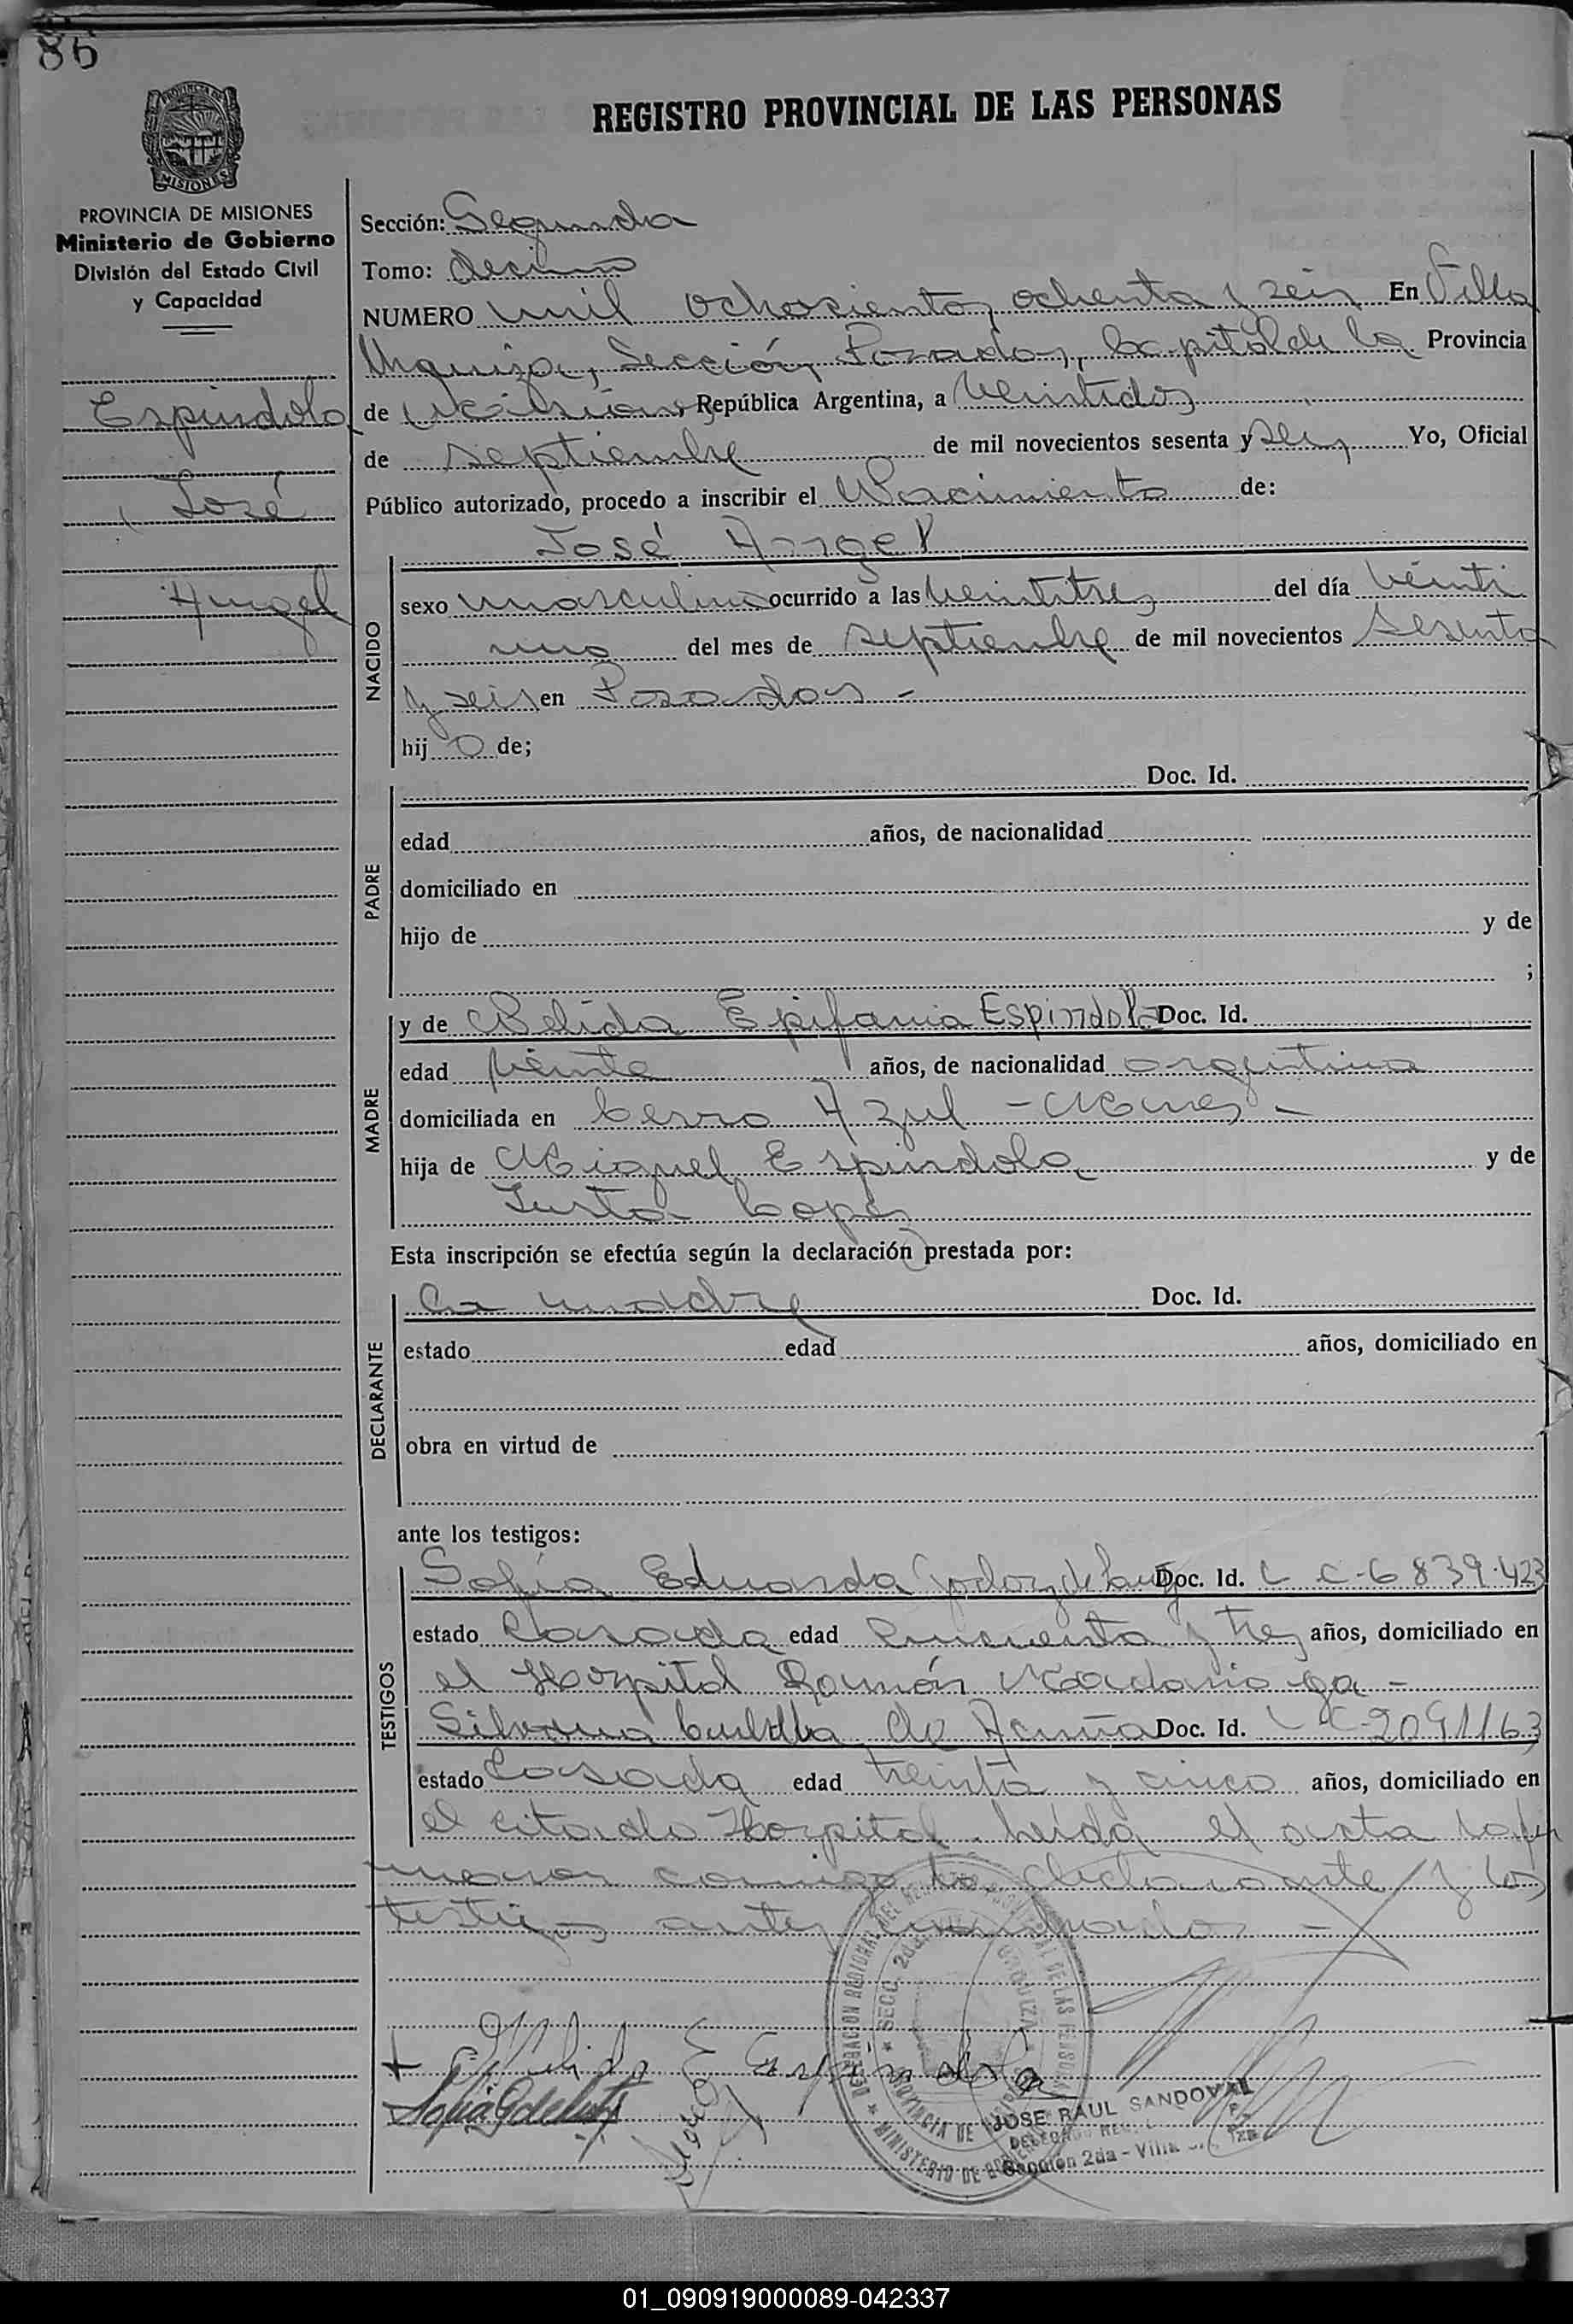 86
REGISTRO PROVINCIAL DE LAS PERSONAS
PROVINCIA DE MISIONES
MISIONES
PROVINCIA DE MISIONES
Ministerio de Gobierno
División del Estado Civil
y Capacidad
Espindola
José
Angel
Sección: Segunda
Tomo: decimo
NUMERO mil ochosientos ochenta y seis En Villa
Urquiza, Sección Posadas, Capital de la Provincia
de Misiones República Argentina, a veintidos
de septiembre de mil novecientos sesenta y seis Yo, Oficial
Público autorizado, procedo a inscribir el Nacimiento de:
José Angel
NACIDO
sexo masculino ocurrido a las veintitres del día veinti
uno del mes de septiembre de mil novecientos sesenta
y seis en Posadas -
hij o de;
PADRE
Doc. Id.
edad años, de nacionalidad
domiciliado en
hijo de y de
;
MADRE
y de Epifania Espindola Doc. Id.
edad veinte años, de nacionalidad argentina
domiciliada en Cerro Azul - Mnes -
hija de Miguel Espindola y de
Justa Lopez
Esta inscripción se efectúa según la declaración prestada por:
DECLARANTE
La madre Doc. Id.
estado edad años, domiciliado en
obra en virtud de
ante los testigos:
TESTIGOS
Sofia Eduarda Godoy de Doc. Id. L C-6 839.423
estado Casada edad cincuenta y tres años, domiciliado en
el Hospital Ramón Madariaga -
Silvana de Acuña Doc. Id. L C-2091163
estado Casada edad treinta y cinco años, domiciliado en
el citado Hospital. Leida el acta la fir
man conmigo la declarante y los
testigos antes nombrados -
E Espindola
JOSE RAUL SANDOVAL
Sección 2da - Villa
01_090919000089-042337